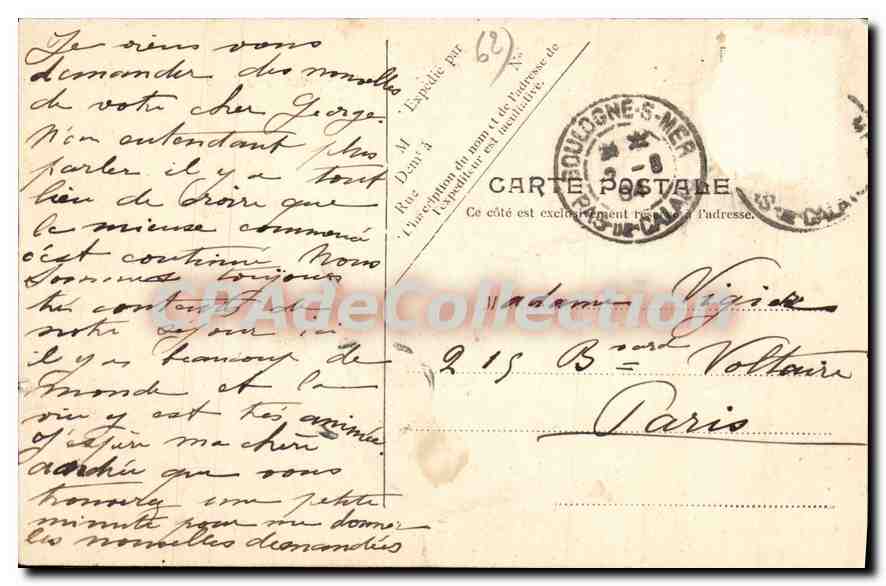 Je viens vous
demander des nouvelles
de votre cher George.
N'en entendant plus
parler il y a tout
lieu de croire que
le mieux commencé
s'est continué Nous
sommes toujours
très contents de
notre séjour ici
il y a beaucoup de
monde et la
vie y est très animée
J'espère ma chère
que vous
trouverez une petite
minute pour me donner
les nouvelles demandées
62)
Expédié par
M
Nº
Demt à
Rue
L'inscription du nom et de l'adresse de
l'expéditeur est facultative.
BOULOGNE-S-MER
8
04
PAS-DE-CALAIS
CARTE POSTALE
Ce côté est exclusivement réservé à l'adresse.
S-DE-CALAI
CPAdeCollection
Madame Vigier
215 Bard Voltaire
Paris